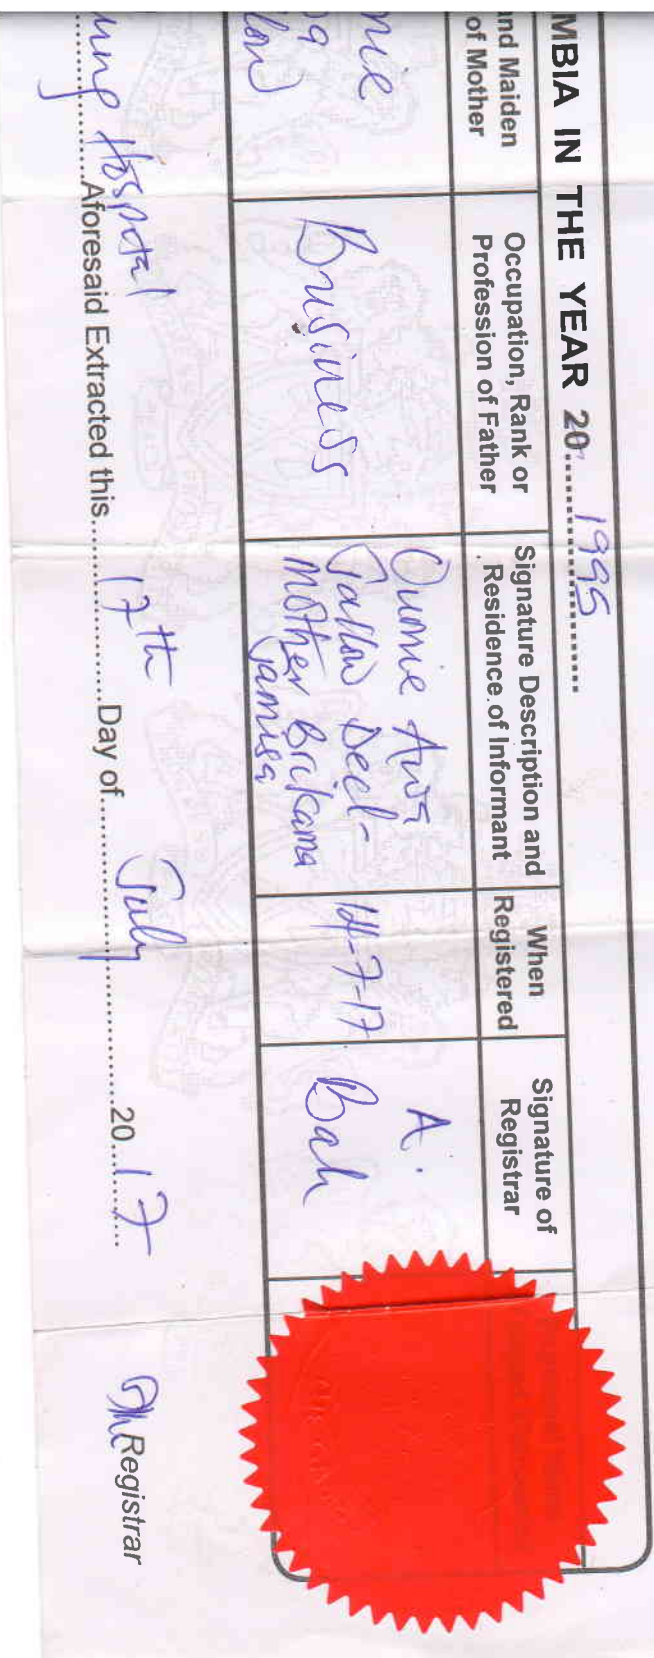 MBIA IN THE YEAR 20 1995
nd Maiden
of Mother
Occupation, Rank or
Profession of Father
Signature Description and
Residence of Informant
When
Registered
Signature of
Registrar
nie
Business
Oumie Awa
Jallow Decl-
mother Brikama
Jamisa
14-7-17
A.
Bah
Hospital
Aforesaid Extracted this 17th Day of July 20 17
Registrar